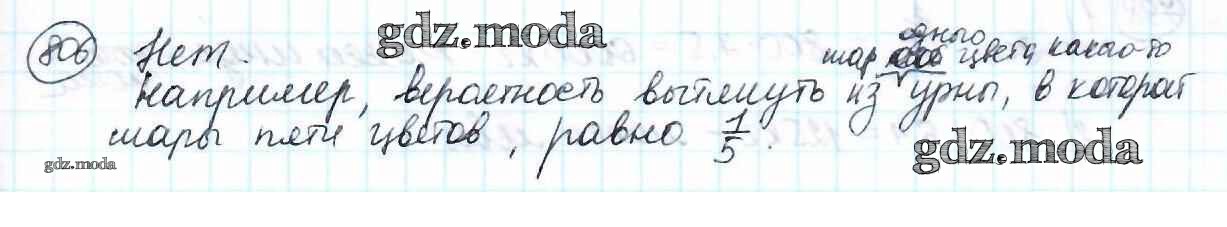 806 Нет.
gdz.moda
одного
шар цвета какого-то
Например, вероятность вытянуть из урны, в которой
шары пяти цветов, равна 1/5.
gdz.moda
gdz.moda